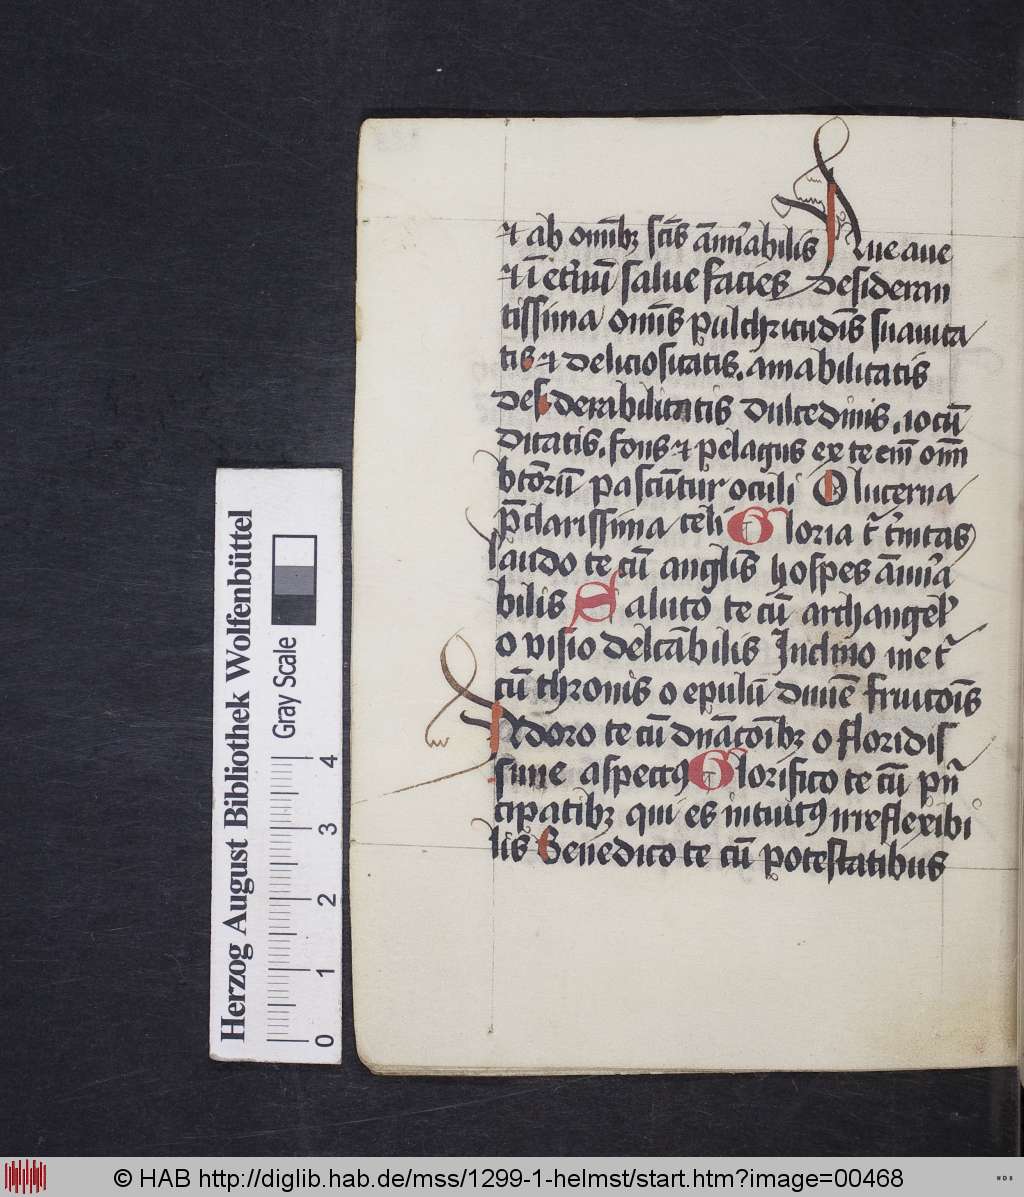 ⁊ ab om̄ibꝫ sc̄is āmirabilis Aue aue
⁊ ī et̓nū salue facies desideran
tissima om̄is pulchritudīs suauita
tis ⁊ deliciositatis. amabilitatis
desiderabilitatis dulcedinis. iocū
ditatis. fons ⁊ pelagus ex te em̄ om̄
btōrū pascūtur oculi O lucerna
p̄clarissima celi Gloria t̓ t̓nitas
laudo te cū anglis hospes
bilis Saluto te cū archangel̓
o visio delcābilis Inclino me t̓
cū thronis o epulū diuīe fruicōis
Adoro te cū dn̄acōibꝫ o floridis
sime aspectꝰ Glorifico te cū pn̄
cipatibꝫ qui es intuitꝰ irreflexibi
lis Benedico te cū potestatibus
Herzog August Bibliothek Wolfenbüttel
Gray Scale
0 1 2 3 4
© HAB http://diglib.hab.de/mss/1299-1-helmst/start.htm?image=00468